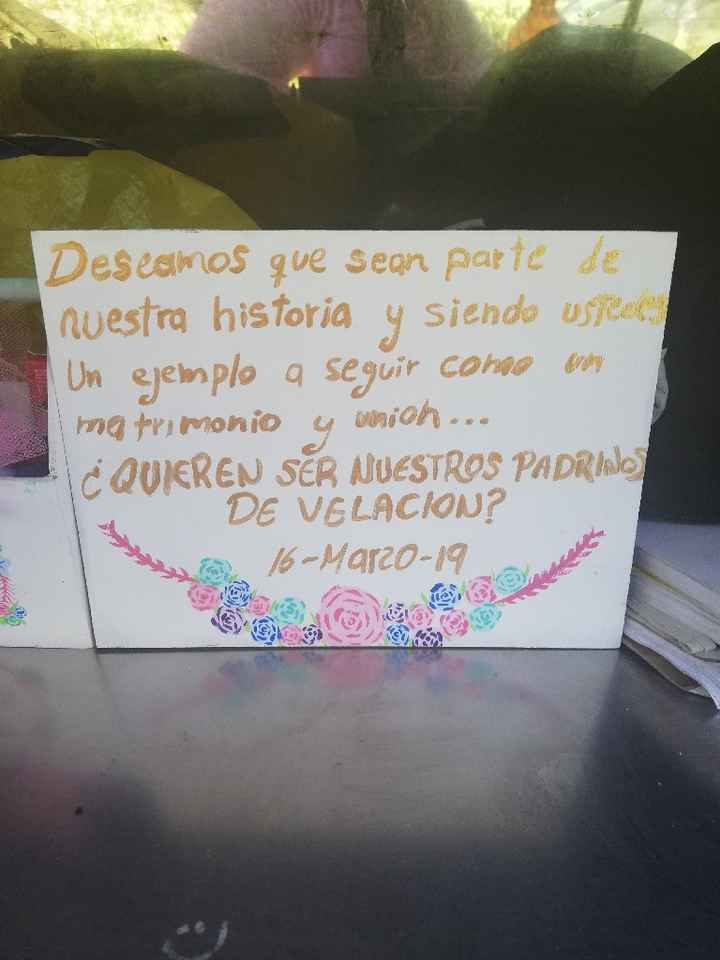 Deseamos que sean parte de
nuestra historia y siendo ustedes
Un ejemplo a seguir como un
matrimonio y union...
¿QUIEREN SER NUESTROS PADRINOS
DE VELACION?
16-Marzo-19